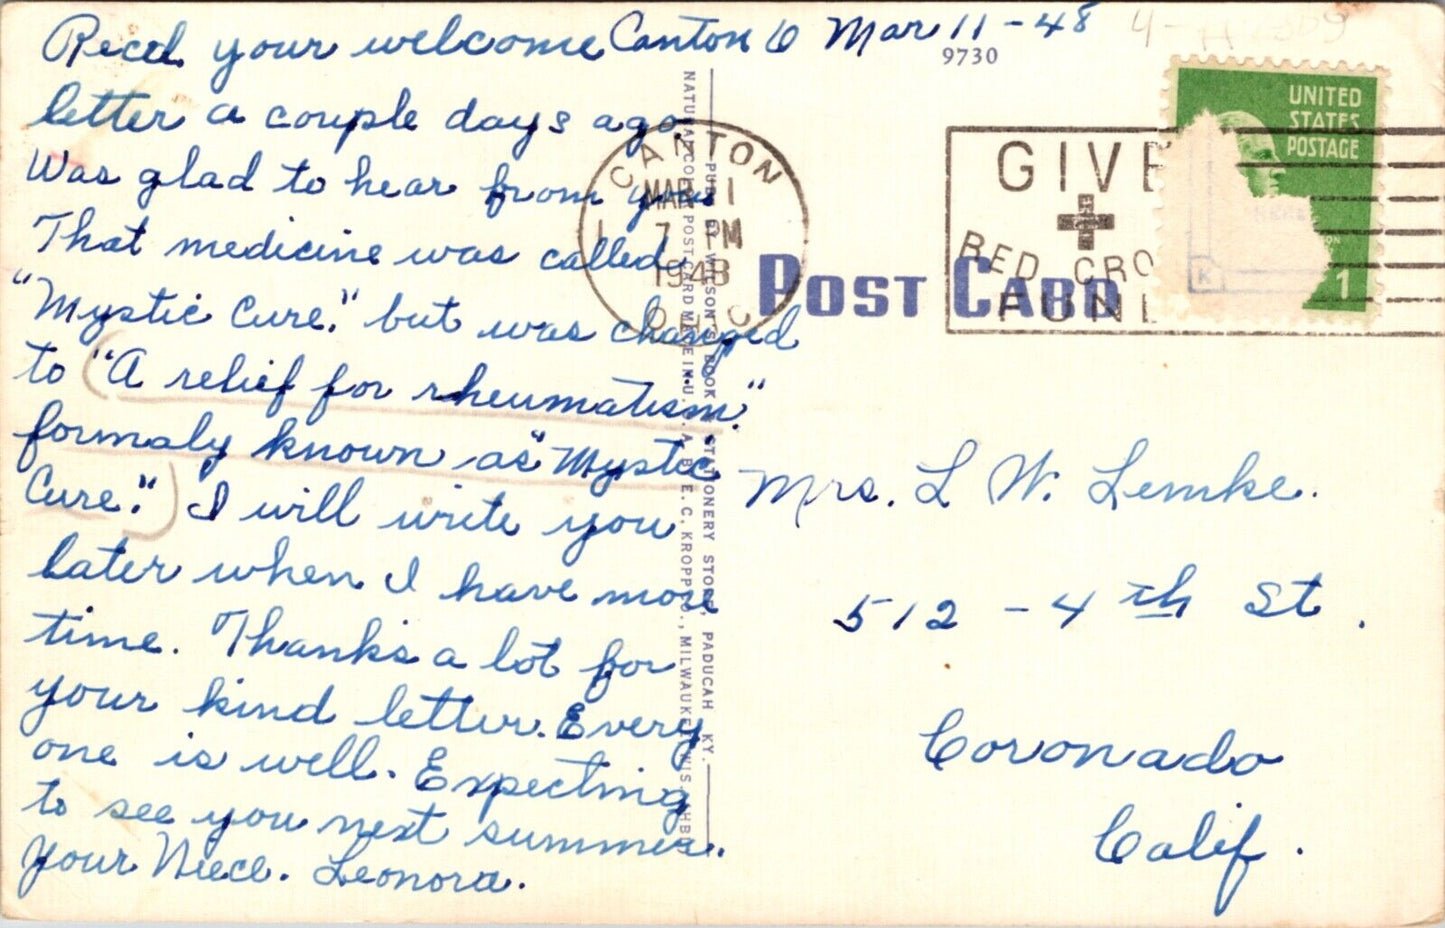 Canton O Mar 11-48
9730
Recd. your welcome
letter a couple days ago
Was glad to hear from you
That medicine was called
"Mystic Cure." but was changed
to "A relief for rheumatism."
formaly known as "Mystic
Cure." I will write you
later when I have more
time. Thanks a lot for
your kind letter. Every
one is well. Expecting
to see you next summer.
Your Niece. Leonora.
NATURAL COLOR POST CARD MADE IN U.S.A. BY E. C. KROPP CO., MILWAUKEE, WIS.
WILSON'S BOOK & STATIONERY STORE, PADUCAH KY.
CANTON
MAR 11
7 PM
1948
POST CARD
GIVE
RED CRO
FUND
UNITED
STATES
POSTAGE
1
K
Mrs. L W. Lemke.
512 - 4th St.
Coronado
Calif.